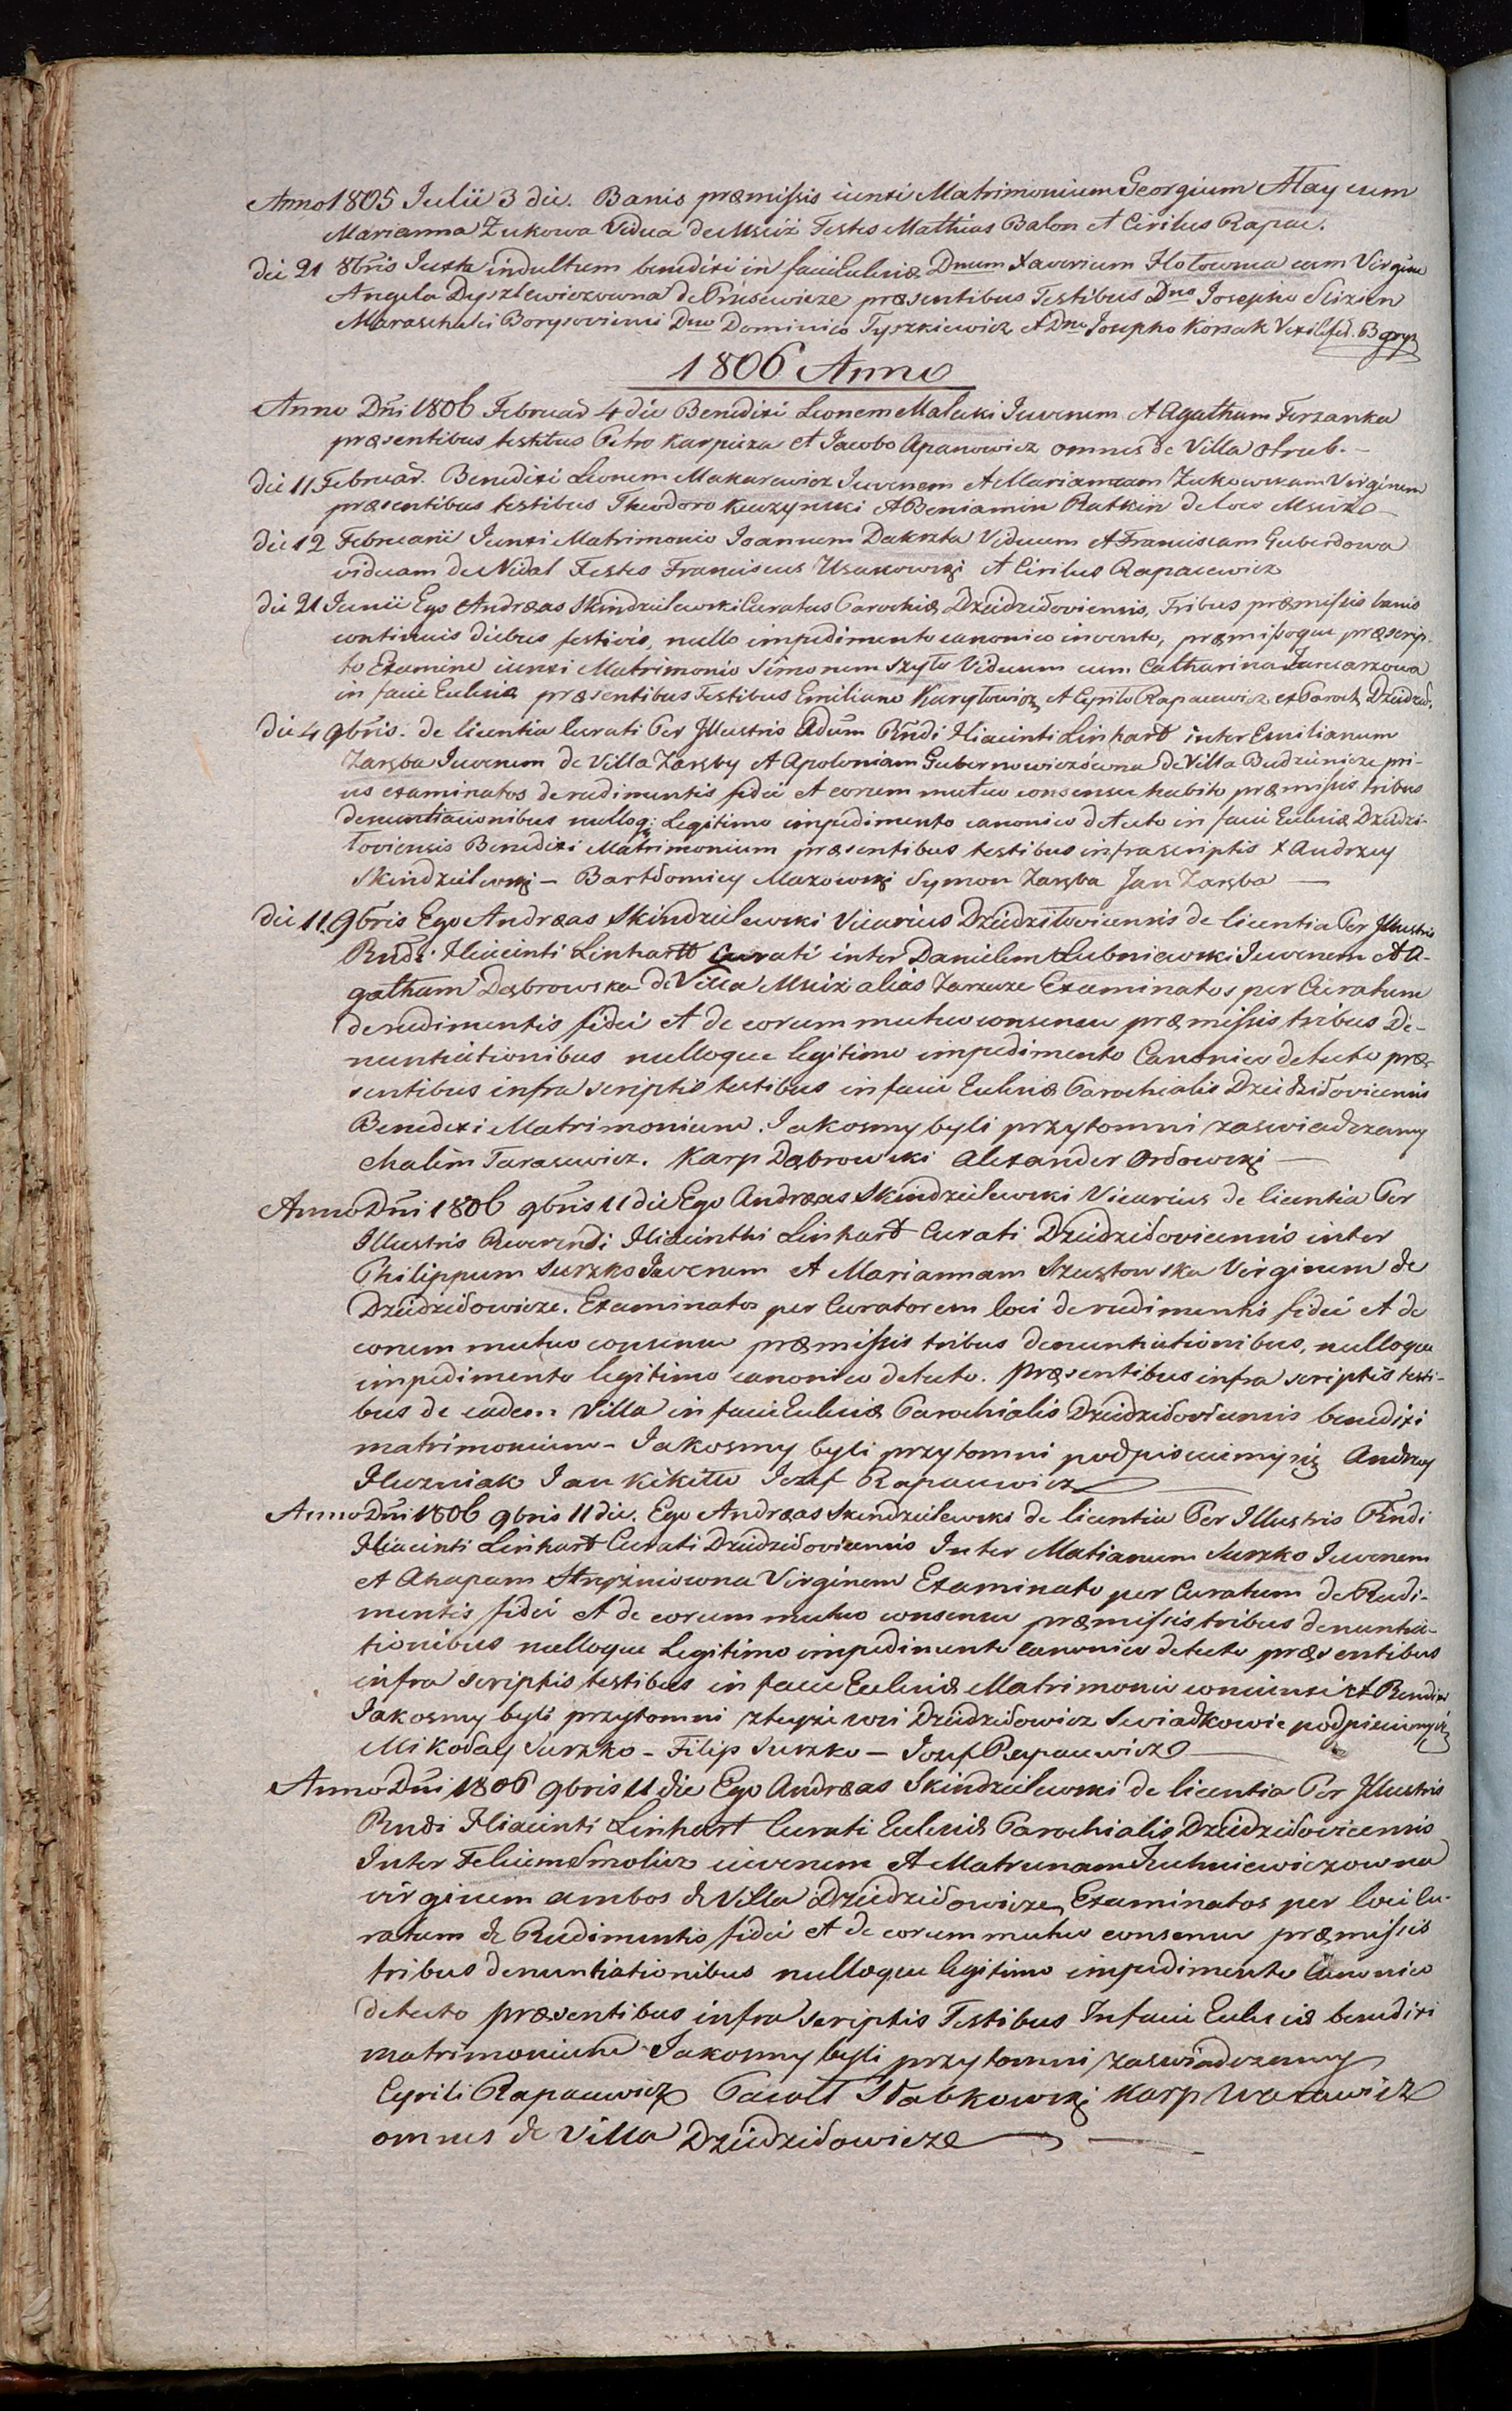 Anno 1805 Julii 3 die. Banis præmissis iunxi Matrimonium Georgium Atay cum
Marianna Zukowa Vidua de Msciż Testes Mathias Balon et Cirilus Rapac.
die 21 8bris Juxta indultum benedixi in facie Eclesiæ Dnum Xaverium Hotownia cum Virgine
Angela Dyszlewiczowna de Prusewicze præsentibus Testibus Dno Josepho Slizien
Maraschalci Borysoviensi Dno Dominico Tyszkiewicz et Dno Josepho Korsak
1806 Anno
Anno Dni 1806 Februar 4 die Benedixi Leonem Malecki Juvenem et Agatham
præsentibus testibus Petro Karpieza et Jacobo Apanowicz omnes de Villa Otrub.
die 11 Februar. Benedixi Leonem Makarewicz Juvenem et Mariannam Zukowskam Virginem
præsentibus testibus Theodoro Kuczynski et Beniamin Ratkin de loco Msciż
die 12 Februarii Junxi Matrimonio Joannem Dakszta Viduum et Franciscam Guberdowa
viduam de Nidal Testes Franciscus Usakowski et Cirilus Rapacewicz
die 21 Junii Ego Andræas Skindzielewski Curatus Parochiæ Dziedziłoviensis, Tribus præmissis banis
continuis diebus festivis, nullo impedimento canonico invento, præmissoque præscrip-
to Examine iunxi Matrimonio Simonem Szyło Viduum cum Catharina
in facie Eclesiæ præsentibus Testibus Emiliano Karyłowicz et Cyrilo Rapacewicz ex Paroch. Dziedził.
die 4 9bris. de licentia Curati Per Jllustris Adum Rndi Hiacinti Linhart inter Emilianum
Zaręba Juvenem de Villa Zaręby et Apoloniam Gubernowiczówna de Villa Budzienicze pri-
us examinatos de rudimentis fidei et eorum mutuo consensu habito præmissis tribus
denuntiacionibus nulloq; Legitimo impedimento canonico detecto in facie Eclesiæ Dziedzi-
łoviensis Benedixi Matrimonium præsentibus testibus infrascriptis X Andrzey
Skindzielewski – Bartłomiey Mazowski Symon Zaręba Jan Zaręba –
die 11 9bris Ego Andræas Skindzielewski Vicarius Dziedziłoviciensis de licentia Per Jllustris
Rndi Hiacinti Linhartt Curati inter Danielem Łubniewski Juvenem et A-
gatham Dąbrowska de Villa Msciż alias Zarzeze Examinatos per Curatum
de rudimentis fidei et de eorum mutuo consensu præmissis tribus De-
nuntiationibus nulloque legitimo impedimento Canonico detecto præ-
sentibus infra scriptis testibus in facie Eclesiæ Parochialis Dziedziłoviciensis
Benedixi Matrimonium. Jakosmy byli przytomni zaswiadczamy
Chalim Tarasewicz. Karp Dąbrowski Alexander Orłowski –
Anno Dni 1806 9bris 11 die Ego Andræas Skindzielewski Vicarius de licentia Per
Illustris Reverendi Hiacinthi Linhart Curati Dziedziłoviciensis inter
Philippum Suszko Juvenem et Mariannam Szustowska Virginem de
Dziedziłowicze. Examinatos per Curatorem loci de rudimentis fidei et de
eorum mutuo consensu præmissis tribus denuntiationibus, nulloque
impedimento legitimo canonico detecto. Præsentibus infra scriptis testi-
bus de eadem Villa in facie Eclesiæ Parochialis Dziedziłoviciensis benedixi
matrimonium – Jakosmy byli przytomni podpisuiemy się Andrzey
Huzniak Jan Kikitto Jozef Rapacewicz
Anno Dni 1806 9bris 11 die. Ego Andræas Skindzielewski de licentia Per Illustris Rndi
Hiacinti Linhart Curati Dziedziłoviciensis Inter Matianum Suszko Juvenem
et Ahapam Virginem Examinato per Curatum de Rudi-
mentis fidei et de eorum mutuo consensu præmissis tribus denuntia-
tionibus nulloque Legitimo impedimento canonico detecto præsentibus
infra scriptis testibus in facie Eclesiæ Matrimonio coniunxi et Benedixi
Jakosmy byli przytomni zteyże wsi Dziedziłowicz Swiadkowie podpisuiemy się
Mikołay Suszko – Filip Suszko – Jozef Rapacewicz
Anno Dni 1806 9bris 11 die Ego Andræas Skindzielewski de licentia Per Jllustris
Rndi Hiacinti Linhart Curati Eclesiæ Parochialis Dziedziłoviciensis
Inter Felicem Smolicz iuvenem et Matrunam Juchniewiczowna
virginem ambos de Villa Dziedziłowicze Examinatos per loci Cu-
ratum de Rudimentis fidei et de eorum mutuo consensu præmissis
tribus denuntiationibus nulloque legitimo impedimento Canonico
detecto præsentibus infra scriptis Testibus In facie Eclesiæ benedixi
matrimonium Jakosmy byli przytomni zaswiadczamy
Cyrili Rapacewicz Pawoł Słabkowski Karp
omnes de Villa Dziedziłowicze